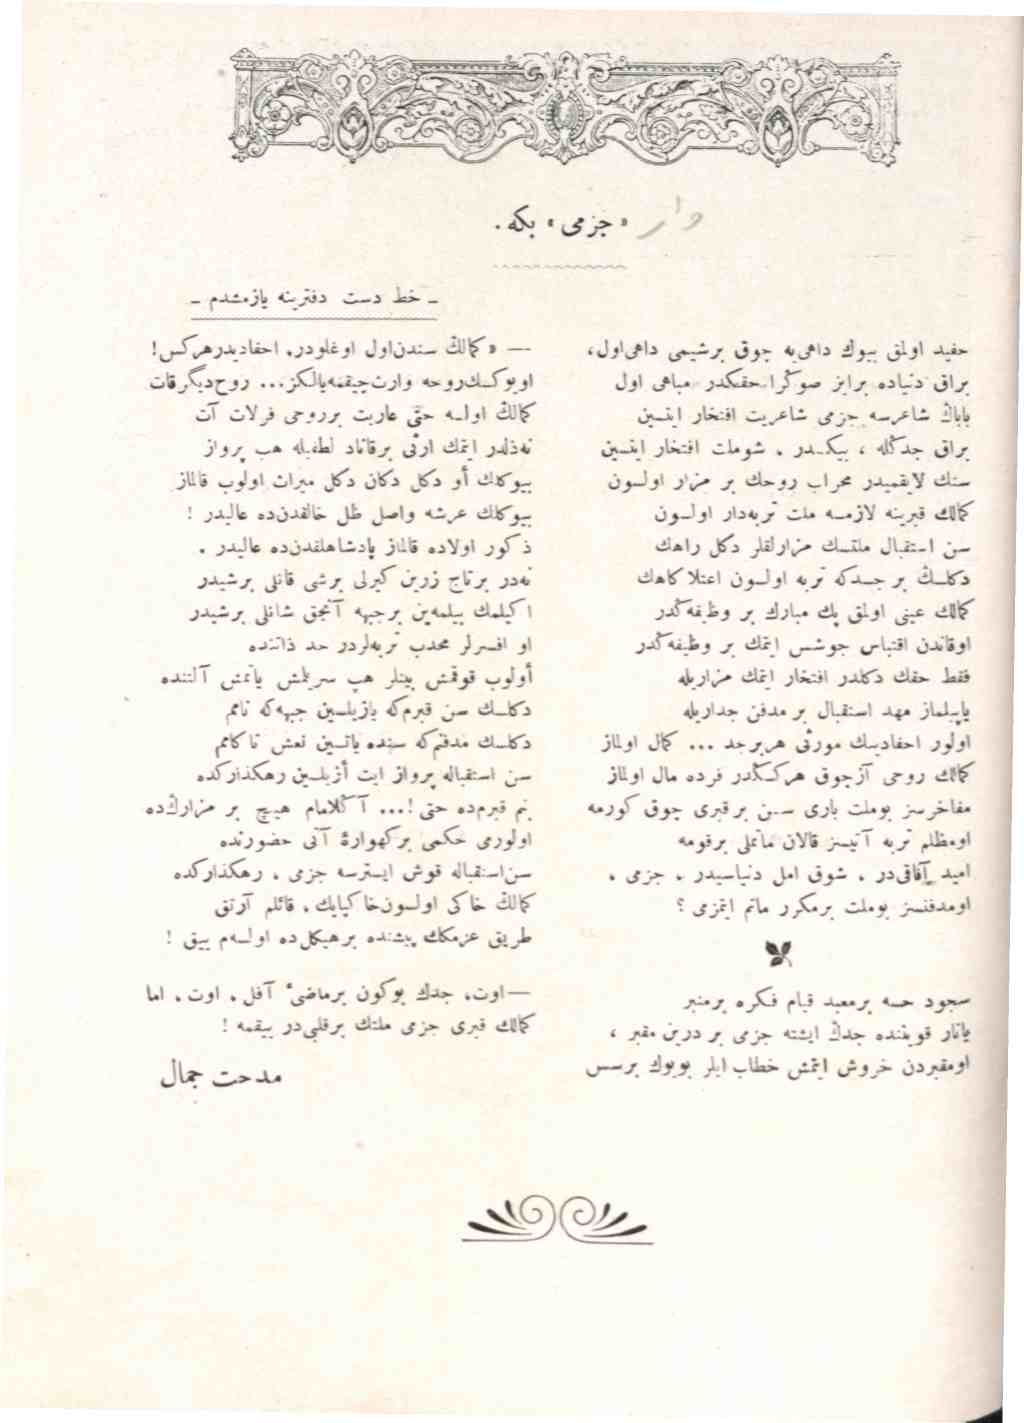 « جزمی » بكه .
ـ خط دست دفترینه یازمشدم ـ
حفید اولمق بیوك داهی‌یه چوق برشیمی داهی‌اول ،
براق دنیاده برایز صوكرا حفكدر مباهی اول
باباڭ شاعرسه جزمی شاعریت افتخار ایتسین
براق جدكله ، بیكسدر ، شوملت افتخار ایتسین
سنك لایقمیدر محراب روحك بر مزار اولسون
كمالك قبرینه لازمسه ملت تربه‌دار اولسون
سن استقبال ملتسك مزارلقلر دكل راهك
دكلسڭ بر جسدكه تربه اولسون اعتلاكاهك
كمالك عینی اولمق پك مبارك بر وظیفه‌كدر
اوقاندن اقتباس جوشش ایتمك بر وظیفه‌كدر
فقط حقك دكلدر افتخار ایتمك مزاریله
یاپیلماز مهد استقبال بر مدفن جداریله
اولور احفادینك موروثی هربرجد ... كمال اولماز
كمالك روحی آزچوق هركسكدر فرده مال اولماز
مفاخرسز بوملت باری سن بر قبری چوق كورمه
اومظلم تربه آتیسز قالان ماتملی برقومه
امید آفاقی‌در ، شوق امل دنیاسیدر ، جزمی ،
اومدفنسز بوملت برمكرر ماتم ایتمزمی ؟
سجود حسه برمعبد قیام فكره برمنبر
یانار قوینده جدڭ ایشته جزمی بر درین مقبر ،
اومقبردن خروش ایتمش خطاب ایلر بویوك برسس
— « كمالڭ سندن اول اوغلودر، احفادیدرهركس !
اویوكسك‌روحه وارث‌چیقمه‌یالكز... روح‌دیگرقات
كمالڭ اولسه حتی عاریت برروحی فرلات آت
نه‌ذلدر ایتمك ارثی برقاناد لطفیله هپ پرواز
بیوكلك أو دكل دكان دكل میراث اولوب قالماز
بیوكلك عرشه واصل ظل خالقدن‌ده عالیدر !
ذكور اولاده قالماز پادشاهلقدن‌ده عالیدر .
نه‌در برتاج زرین كیرلی برشی قانلی برشیدر
اكیلمك بیلمه‌ین برجبهه آنجق شانلی برشیدر
او افسرلر محدب تربه‌لردر حد ذاتنده
أولوب قوقمش بینلر هپ سریلمش یاتمش آلتنده
دكلسك سن قبرم‌كه یازیلسین جبهه‌كه نامم
دكلسك مدفنم‌كه سنده یاتسین نعش ناكامم
سن استقباله پرواز ایت أزیلسین رهكذاركده
بنم قبرم‌ده حتی !... آكلامام هیچ بر مزارڭ‌ده
اولورمی حكمی بركهوارهٔ آتی حضورنده
سن‌استقباله قوش ایسترسه جزمی ، رهكذاركده
كمالڭ خاكی اولسون‌خاكپایك ، قائلم آرتق
طریق عزمكك پیشنده برهیكل‌ده اولسه‌م ییق !
— اوت، جدك بوكون برماضیٔ آفل ، اوت ، اما
كمالك قبری جزمی ملتك برقلبی‌در ییقمه !
مدحت جمال